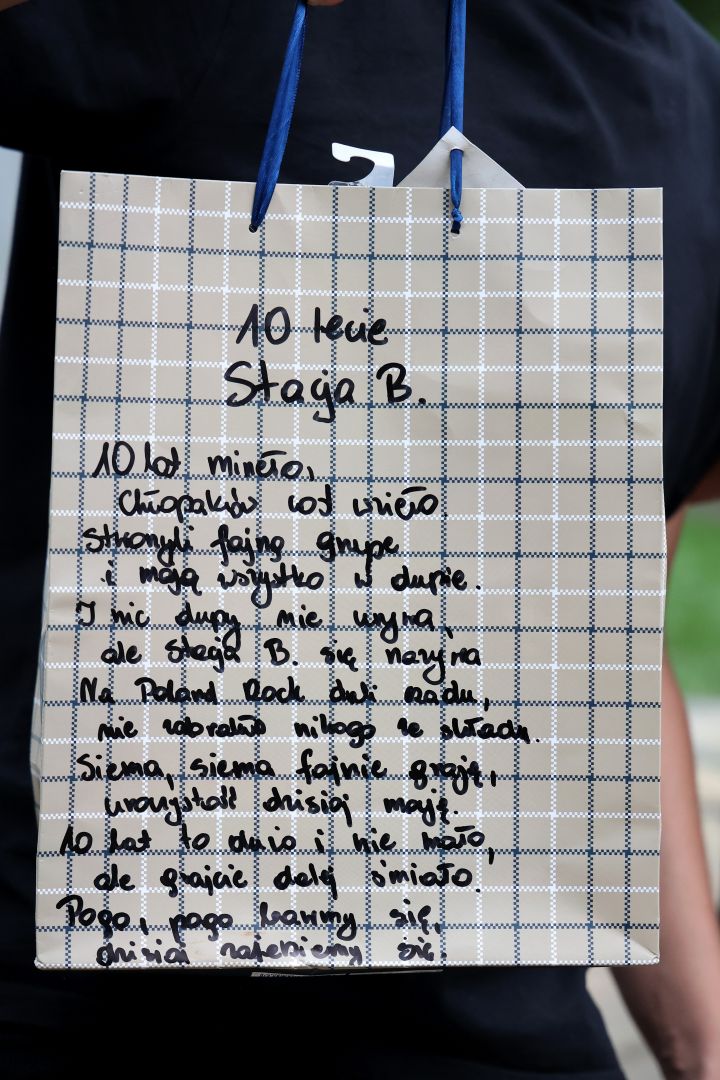 10 lecie
Stacja B.
10 lat minęło,
Chłopaków coś wzięło.
Stworzyli fajną grupę
i mają wszystko w dupie.
I nic dupy nie urywa,
ale Stacja B. się nazywa
Na Poland Rock dali radu,
nie zabrakło nikogo ze składu.
Siema, siema fajnie grają,
uroczystość dzisiaj mają.
10 lat to dużo i nie mało,
ale grajcie dalej śmiało.
Pogo, pogo bawmy się,
dzisiaj najebiemy się.